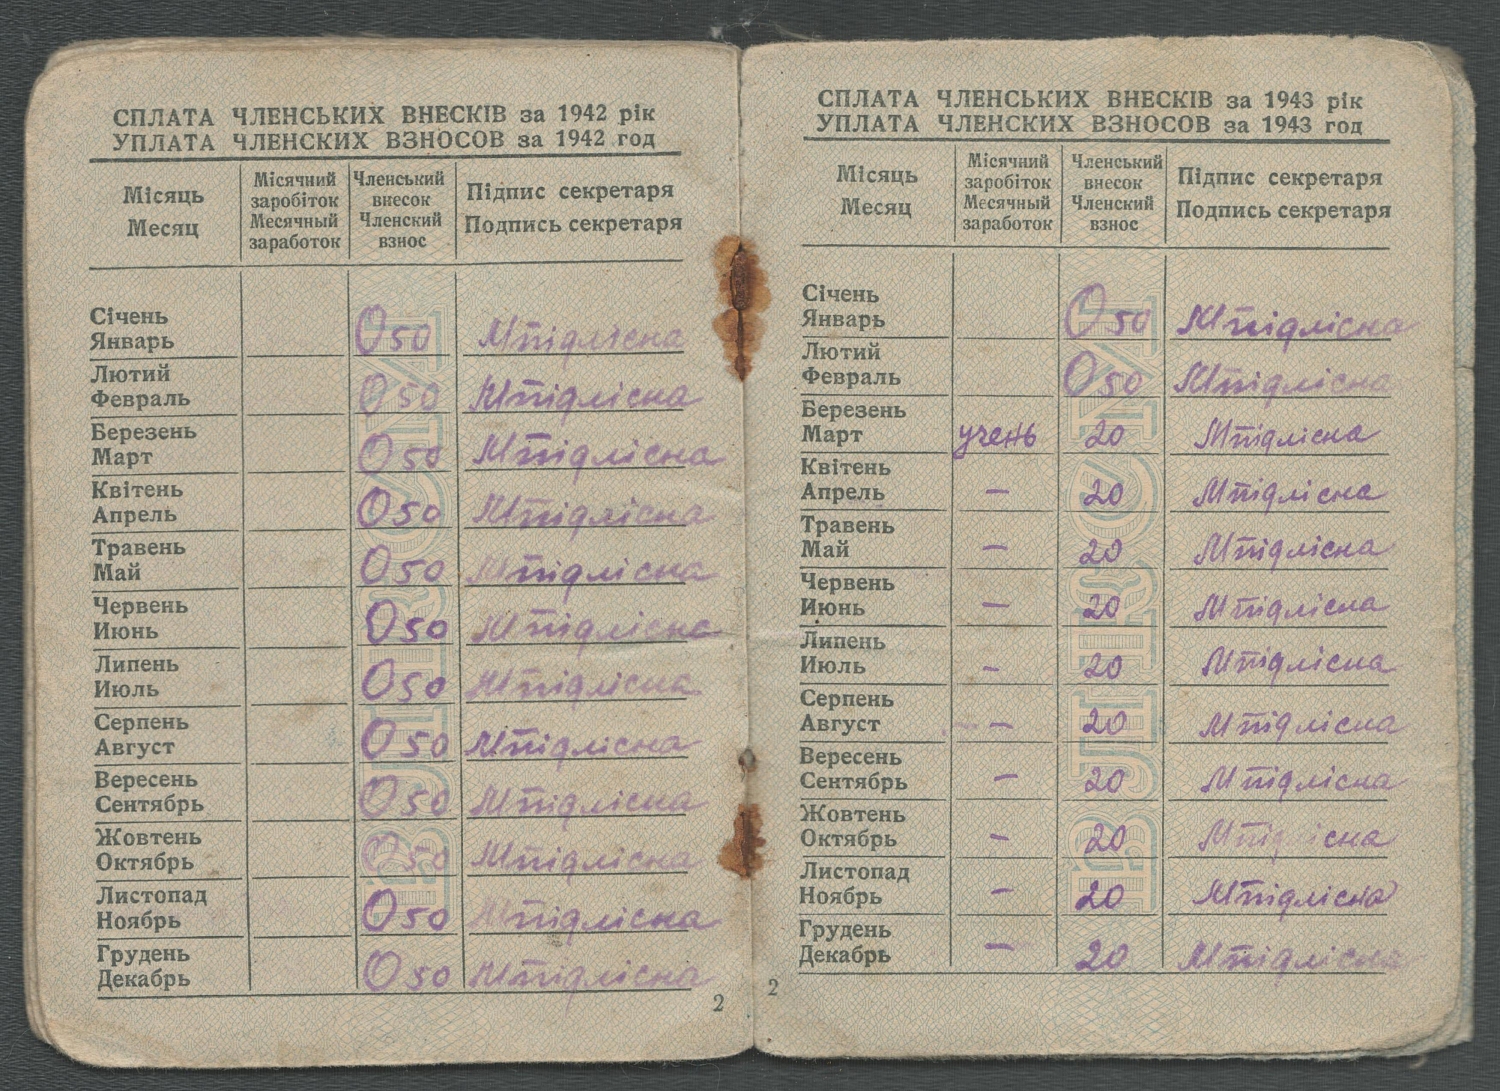 СПЛАТА ЧЛЕНСЬКИХ ВНЕСКІВ за 1942 рік
УПЛАТА ЧЛЕНСКИХ ВЗНОСОВ за 1942 год
Місяць
Месяц
Місячний
заробіток
Месячный
заработок
Членський
внесок
Членский
взнос
Підпис секретаря
Подпись секретаря
Січень
Январь 050 Мпідлісна
Лютий
Февраль 050 Мпідлісна
Березень
Март 050 Мпідлісна
Квітень
Апрель 050 Мпідлісна
Травень
Май 050 Мпідлісна
Червень
Июнь 050 Мпідлісна
Липень
Июль 050 Мпідлісна
Серпень
Август 050 Мпідлісна
Вересень
Сентябрь 050 Мпідлісна
Жовтень
Октябрь 050 Мпідлісна
Листопад
Ноябрь 050 Мпідлісна
Грудень
Декабрь 050 Мпідлісна
2
СПЛАТА ЧЛЕНСЬКИХ ВНЕСКІВ за 1943 рік
УПЛАТА ЧЛЕНСКИХ ВЗНОСОВ за 1943 год
Місяць
Месяц
Місячний
заробіток
Месячный
заработок
Членський
внесок
Членский
взнос
Підпис секретаря
Подпись секретаря
Січень
Январь 050 Мпідлісна
Лютий
Февраль 050 Мпідлісна
Березень
Март учень 20 Мпідлісна
Квітень
Апрель — 20 Мпідлісна
Травень
Май — 20 Мпідлісна
Червень
Июнь — 20 Мпідлісна
Липень
Июль — 20 Мпідлісна
Серпень
Август — 20 Мпідлісна
Вересень
Сентябрь — 20 Мпідлісна
Жовтень
Октябрь — 20 Мпідлісна
Листопад
Ноябрь — 20 Мпідлісна
Грудень
Декабрь — 20 Мпідлісна
2